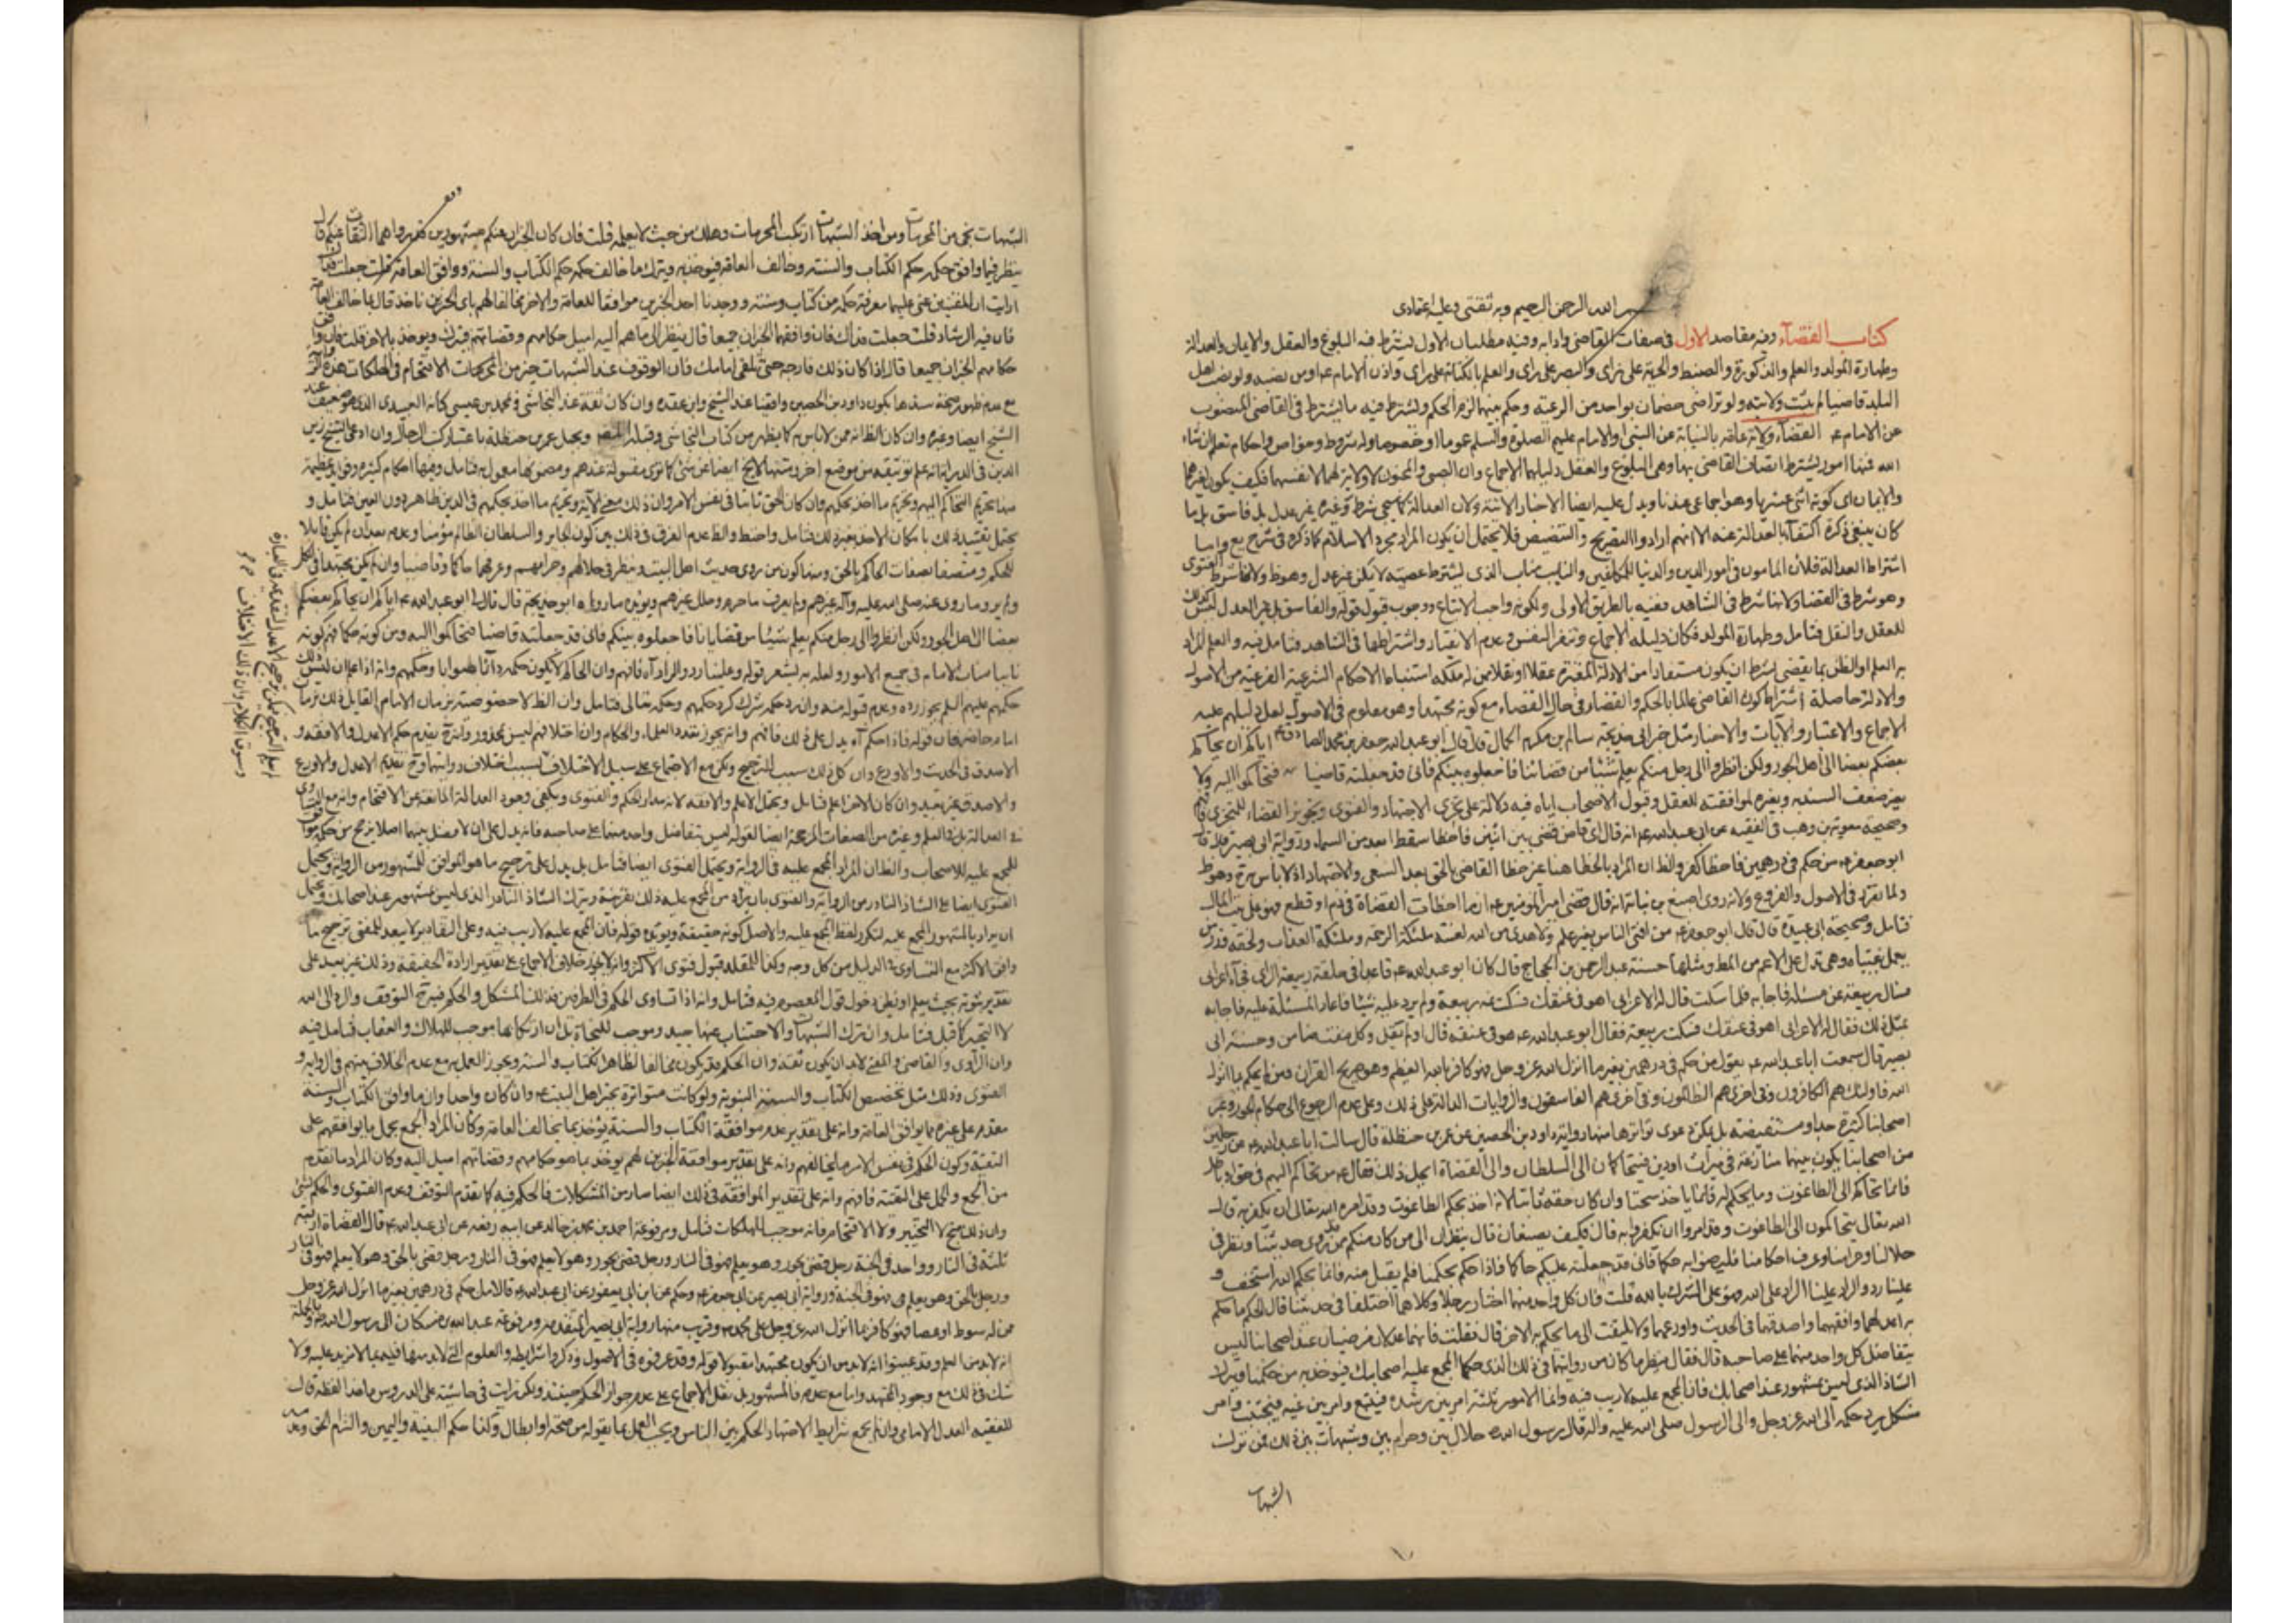 بسم الله الرحمن الرحيم وبه ثقتى وعليه اعتمادى
كتاب القضآء وفيه مقاصد الاول فى صفات القاضى وادابه وفيه مطلبان الاول يشترط فيه البلوغ والعقل والايمان والعدالة
وطهارة المولد والعلم والذكورة والضبط والحرية على راى والبصر على راى والعلم بالكتابة على راى واذن الامام عه او من نصبه ولو نصب اهل
البلد قاضيا لم يثبت ولايته ولو تراضى خصمان بواحد من الرعية وحكم بينهما لزم الحكم ويشترط فيه ما يشترط فى القاضى المنصوب
عن الامام عه القضآء ولاية عامة بالنيابة عن النبى او الامام عليهم الصلوة والسلم عموما او خصوصا وله شروط وخواص واحكام تعلم ان شاء
الله فهنا امور يشترط اتصاف القاضى بها وهى البلوغ والعقل دليلهما الاجماع وان الصبى والمجنون لا ولاية لهما لانفسهما فكيف يكون لغيرهما
والايمان اى كونه اثنى عشريا وهو اجماعى عندنا ويدل عليه ايضا الاخبار الاتية ولان العدالة كما سيجى شرط وغيره غير عدل بل فاسق بل ما
كان ينبغى ذكره اكتفآء بالعدالة عنه الا انهم ارادوا التصريح والتنصيص فلا يحتمل ان يكون المراد مجرد الاسلام كما ذكره فى شرح يع واما
اشتراط العدالة فلان المامون فى امور الدين والدنيا للمكلفين والنايب مناب الذى يشترط عصمته لا يكون غير عدل وهو ظ ولانها شرط الفتوى
وهو شرط فى القضاء ولانها شرط فى الشاهد ففيه بالطريق الاولى ولكونه واجب الاتباع ووجوب قبول قوله والفاسق بل غير العدل ليس كذلك
للعقل والنقل فتامل وطهارة المولد فكان دليله الاجماع وتنفر النفس وعدم الانقياد واشتراطها فى الشاهد فتامل فيه والعلم المراد
به العلم او الظن بما يقضى بشرط ان يكون مستفادا من الادلة المعتبرة عقلا او نقلا ممن له ملكة استنباط الاحكام الشرعية الفرعية من الاصول
والادلة حاصلة اشتراط كون القاضى عالما بالحكم والقضاء فى حال القضاء مع كونه مجتهدا وهو معلوم فى الاصول لعل دليلهم عليه
الاجماع والاعتبار والآيات والاخبار مثل خبر ابى خديجة سالم بن مكرم الجمال قال قال ابو عبد الله جعفر بن محمد الصادق عه اياكم ان يحاكم
بعضكم بعضا الى اهل الجور ولكن انظروا الى رجل منكم يعلم شيئا من قضائنا فاجعلوه بينكم فانى قد جعلته قاضيا فتحاكموا اليه ولا
يضر ضعف السند به وبغيره لموافقته للعقل وقبول الاصحاب اياه فيه دلالة على تجزى الاجتهاد والفتوى وتجويز القضاء للمتجزى
وصحيحة معوية بن وهب فى الفقيه عن ابى عبد الله عه انه قال اى قاض قضى بين اثنين فاخطا سقط ابعد من السماء ورواية ابى بصير قال قال
ابو جعفر عه من حكم فى درهمين فاخطا كفر والظ ان المراد بالخطا هنا غير خطا القاضى بالحق بعد السعى والاجتهاد اذ لا باس به ح وهو ظ
ولما تقرر فى الاصول والفروع ولانه روى اصبغ بن نباتة انه قال قضى امير المؤمنين عه ان ما اخطات القضاة فى دم او قطع فهو على بيت المال
فتامل وصحيحة ابى عبيدة قال قال ابو جعفر عه من افتى الناس بغير علم ولا هدى من الله لعنته ملئكة الرحمة وملئكة العذاب ولحقه وزر من
يعمل بفتياه وهى تدل على الاعم من المط ومثلها حسنة عبد الرحمن بن الحجاج قال كان ابو عبد الله عه قاعدا فى حلقة ربيعة الراى فجآء اعرابى
فسال ربيعة عن مسئلة فاجابه فلما سكت قال له الاعرابى اهو فى عنقك فسكت عنه ربيعة ولم يرد عليه شيئا فاعاد المسئلة عليه فاجابه
بمثل ذلك فقال له الاعرابى اهو فى عنقك فسكت ربيعة فقال ابو عبد الله عه هو فى عنقه قال او لم يقل وكل مفت ضامن وحسنة ابى
بصير قال سمعت ابا عبد الله عه يقول من حكم فى درهمين بغير ما انزل الله عز وجل فهو كافر بالله العظيم وهو صريح القران ومن لم يحكم بما انزل
الله فاولئك هم الكافرون وفى اخرى هم الظالمون وفى اخرى هم الفاسقون والروايات الدالة على ذلك وعلى عدم الرجوع الى حكام الجور وغير
اصحابنا كثيرة جدا ومستفيضة بل يمكن دعوى تواترها منها رواية داود بن الحصين عن عمر بن حنظلة قال سالت ابا عبد الله عه عن رجلين
من اصحابنا يكون بينهما منازعة فى ميراث او دين فتحاكما الى السلطان والى القضاة ايحل ذلك فقال عه من تحاكم اليهم فى حق او باطل
فانما تحاكم الى الطاغوت وما يحكم له فانما ياخذ سحتا وان كان حقه ثابتا لانه اخذ بحكم الطاغوت وقد امره الله تعالى ان يكفر به قال
الله تعالى يتحاكمون الى الطاغوت وقد امروا ان يكفروا به قال فكيف يصنعان قال ينظران الى من كان منكم ممن قد روى حديثنا ونظر فى
حلالنا وحرامنا وعرف احكامنا فليرضوا به حكما فانى قد جعلته عليكم حاكما فاذا حكم بحكمنا فلم يقبل منه فانما بحكم الله استخف و
علينا رد والراد علينا الراد على الله فهو على الشرك بالله قلت فان كل واحد منهما اختار رجلا وكلاهما اختلفا فى حديثنا قال الحكم ما حكم
به اعدلهما وافقههما واصدقهما فى الحديث واورعهما ولا يلتفت الى ما يحكم به الاخر قال فقلت فانهما عدلان مرضيان عند اصحابنا ليس
يتفاضل كل واحد منهما على صاحبه قال فقال ينظر ما كان من روايتهما فى ذلك الذى حكما المجمع عليه اصحابك فيؤخذ به من حكمنا ويترك
الشاذ الذى ليس بمشهور عند اصحابك فان المجمع عليه لا ريب فيه وانما الامور ثلثة امر بين رشده فيتبع وامر بين غيه فيجتنب وامر
مشكل يرد حكمه الى الله عز وجل والى الرسول صلى الله عليه واله قال رسول الله ص حلال بين وحرام بين وشبهات بين ذلك فمن ترك
الشبهات
الشبهات نجى من المحرمات ومن اخذ الشبهات ارتكب المحرمات وهلك من حيث لا يعلم قلت فان كان الخبران عنكم مشهورين قد رواهما الثقات عنكم قال
ينظر فيما وافق حكمه حكم الكتاب والسنة وخالف العامة فيؤخذ به ويترك ما خالف حكمه حكم الكتاب والسنة ووافق العامة قلت جعلت فداك
ارايت ان المفتيين غبى عليهما معرفة حكمه من كتاب وسنة ووجدنا احد الخبرين موافقا للعامة والاخر مخالفا لهم باى الخبرين ناخذ قال بما خالف العامة
فان فيه الرشاد قلت جعلت فداك فان وافقهما الخبران جميعا قال ينظر الى ما هم اليه اميل حكامهم وقضاتهم فيترك ويؤخذ بالاخر قلت فان وافق
حكامهم الخبران جميعا قال اذا كان ذلك فارجه حتى تلقى امامك فان الوقوف عند الشبهات خير من الاقتحام فى الهلكات هذه
مع عدم ظهور صحة سندها بكون داود بن الحصين واقفيا عند الشيخ وابن عقدة وان كان ثقة عند النجاشى ومحمد بن عيسى كانه العبيدى الذى هو ضعيف عند
الشيخ ايضا وغيره وان كان الظ انه ممن لا باس به كما يظهر من كتاب النجاشى وقبله المصـ وبجهل عمر بن حنظلة باعتبار كتب الرجال وان ادعى الشيخ زين
الدين فى الدراية انه علم توثيقه من موضع اخر ومتنها لا يخ ايضا عن شئ كما ترى مقبولة عندهم ومضمونها معمول به فتامل وفيها احكام كثيرة وفوايد عظيمة
منها تحريم التحاكم اليهم وتحريم ما اخذ بحكمهم وان كان الحق ثابتا فى نفس الامر وان ذلك معنى الآية وتحريم ما اخذ بحكمهم فى الدين ظاهر دون العين فتامل و
يحتمل تقييد ذلك بامكان الاخذ بغيره لك فتامل واحتط والظ عدم الفرق فى ذلك بين كون الجابر والسلطان الظالم مؤمنا وعدمه بعد ان لم يكن قابلا
للحكم ومتصفا بصفات الحاكم بالحق ومنها كون من روى حديث اهل البيت ونظر فى حلالهم وحرامهم وعرفها حاكما وقاضيا وان لم يكن مجتهدا فى الكل
ولم يرو ما روى عنه صلى الله عليه وآله غيرهم ولم يعرف ما حرم وحلل غيرهم ويؤيده ما رواه ابو خديجة قال قال لى ابو عبد الله عه اياكم ان يحاكم بعضكم
بعضا الى اهل الجور ولكن انظروا الى رجل منكم يعلم شيئا من قضايانا فاجعلوه بينكم فانى قد جعلته قاضيا فتحاكموا اليه ومن كونه حكما فهم كونه
نايبا مناب الامام فى جميع الامور ولعله به يشعر قوله وعلينا رد والراد آه فافهم وان الحاكم لا يكون حكمه دآئما صوابا وحكمهم وانه اذا علم ان ليس ذلك
حكمهم عليهم السلم يجوز رده وعدم قبوله منه وان رد حكمه شرك كرد حكمهم وحكمه تعالى فتامل وان الظ لا خصوصية بزمان الامام القايل ذلك بزمان
امام حاضر فان قوله فاذا حكم آه يدل على ذلك فافهم وانه يجوز تعدد العلماء والحكام وان اختلافهم ليس بمحذور وانه ح يقدم حكم الاعدل والافقه و
الاصدق فى الحديث والاورع وان كل ذلك سبب للترجيح ولكن مع الاجتماع على سبيل الاختلاف بسبب اختلاف روايتهما وح تقديم الاعدل والاورع
والاصدق غير بعيد وان كان الاخر اعلم فتامل ويحتمل الاعلم والافقه لانه مدار الحكم والفتوى ويكفى وجود العدالة المانعة عن الاقتحام وانه مع التساوى
فى العدالة بل فى العلم وغيره من الصفات المرجحة ايضا لقوله ليس يتفاضل واحد منهما على صاحبه فانه يدل على ان لا فضل بينهما اصلا يرجح من حكمه موافق
للمجمع عليه للاصحاب والظ ان المراد المجمع عليه فى الرواية ويحتمل الفتوى ايضا فتامل بل يدل على ترجيح ما هو الموافق للمشهور من الرواية ويحتمل
الفتوى ايضا على الشاذ النادر من الرواية والفتوى بان يراد من المجمع عليه ذلك بقرينة ويترك الشاذ النادر الذى ليس بمشهور عند اصحابك ويحتمل
ان يراد بالمشهور المجمع عليه لتكرر لفظ المجمع عليه والاصل كونه حقيقة ويؤيده قوله فان المجمع عليه لا ريب فيه وعلى التقادير لا يبعد للمفتى ترجيح ما
وافق الاكثر مع التساوى فى الدليل من كل وجه وكذا للمقلد قبول فتوى الاكثر وانه لا يجوز خلاف الاجماع على تقدير ارادة الحقيقة وذلك غير بعيد على
تقدير ثبوته بحيث يعلم او يظن دخول قول المعصوم فيه فتامل وانه اذا تساوى الحكم فى الطرفين فذلك المشكل والحكم فيه ح التوقف والرد الى الله
لا التخيير كما قيل فتامل وان ترك الشبهات والاجتناب عنها جيد وموجب للنجاة بل ان ارتكابها موجب للهلاك والعقاب فتامل فيه
وان الراوى والقاضى والمفتى لا بد ان يكون ثقة وان الحكم قد يكون مخالفا لظاهر الكتاب والسنة ويجوز العمل به مع عدم الخلاف بينهم فى الرواية و
الفتوى وذلك مثل تخصيص الكتاب والسنة النبوية ولو كانت متواترة بخبر اهل البيت عه وان كان واحدا وان ما وافق الكتاب والسنة
مقدم على غيره مما يوافق العامة وانه على تقدير عدم موافقة الكتاب والسنة يؤخذ بما يخالف العامة وكان المراد الجمع بحمل ما يوافقهم على
التقية وكون الحكم فى نفس الامر ما يخالفهم وانه على تقدير موافقة الخبرين لهم يؤخذ بما هو حكامهم وقضاتهم اميل اليه وكان المراد ما تقدم
من الجمع والحمل على التقية فافهم وانه على تقدير الموافقة فى ذلك ايضا صار من المشكلات فالحكم فيه كما تقدم التوقف وعدم الفتوى والحكم بشئ
وان ذلك يتبع لا التخيير ولا الاقتحام فانه موجب للهلكات فتامل ومرفوعة احمد بن محمد بن خالد عن ابيه رفعه عن ابى عبد الله عه قال القضاة اربعة
ثلثة فى النار وواحد فى الجنة رجل قضى بجور وهو يعلم فهو فى النار ورجل قضى بجور وهو لا يعلم فهو فى النار ورجل قضى بالحق وهو لا يعلم فهو فى النار
ورجل بالحق وهو يعلم فهو فى الجنة ورواية ابى بصير عن ابى جعفر عه وحكم عن ابن ابى يعفور عن ابى عبد الله عه قالا من حكم فى درهمين بغير ما انزل الله عز وجل
ممن له سوط او عصا فهو كافر بما انزل الله عز وجل على محمد ص وقريب منها رواية ابى بصير المتقدمة ومرفوعة عبد الله بن مسكان الى رسول الله ص وبالجملة
انه لا بد من العلم وقد عينوا انه لا بد من ان يكون مجتهدا مقبولا قوله وقد عرفوه فى الاصول وذكروا شرايطه والعلوم التى لا بد منها فيه بما لا مزيد عليه ولا
شك فى ذلك مع وجود المجتهد واما مع عدمه فالمشهور بل نقل الاجماع على عدم جواز الحكم حينئذ ولكن رايت فى حاشية على الدروس ما هذا لفظه قال
للفقيه العدل الامامى وان لم يجمع شرايط الاجتهاد الحكم بين الناس ويجب العمل بما يقوله من صحة او ابطال وكذا حكم البينة واليمين والتزام الحق وعدمه